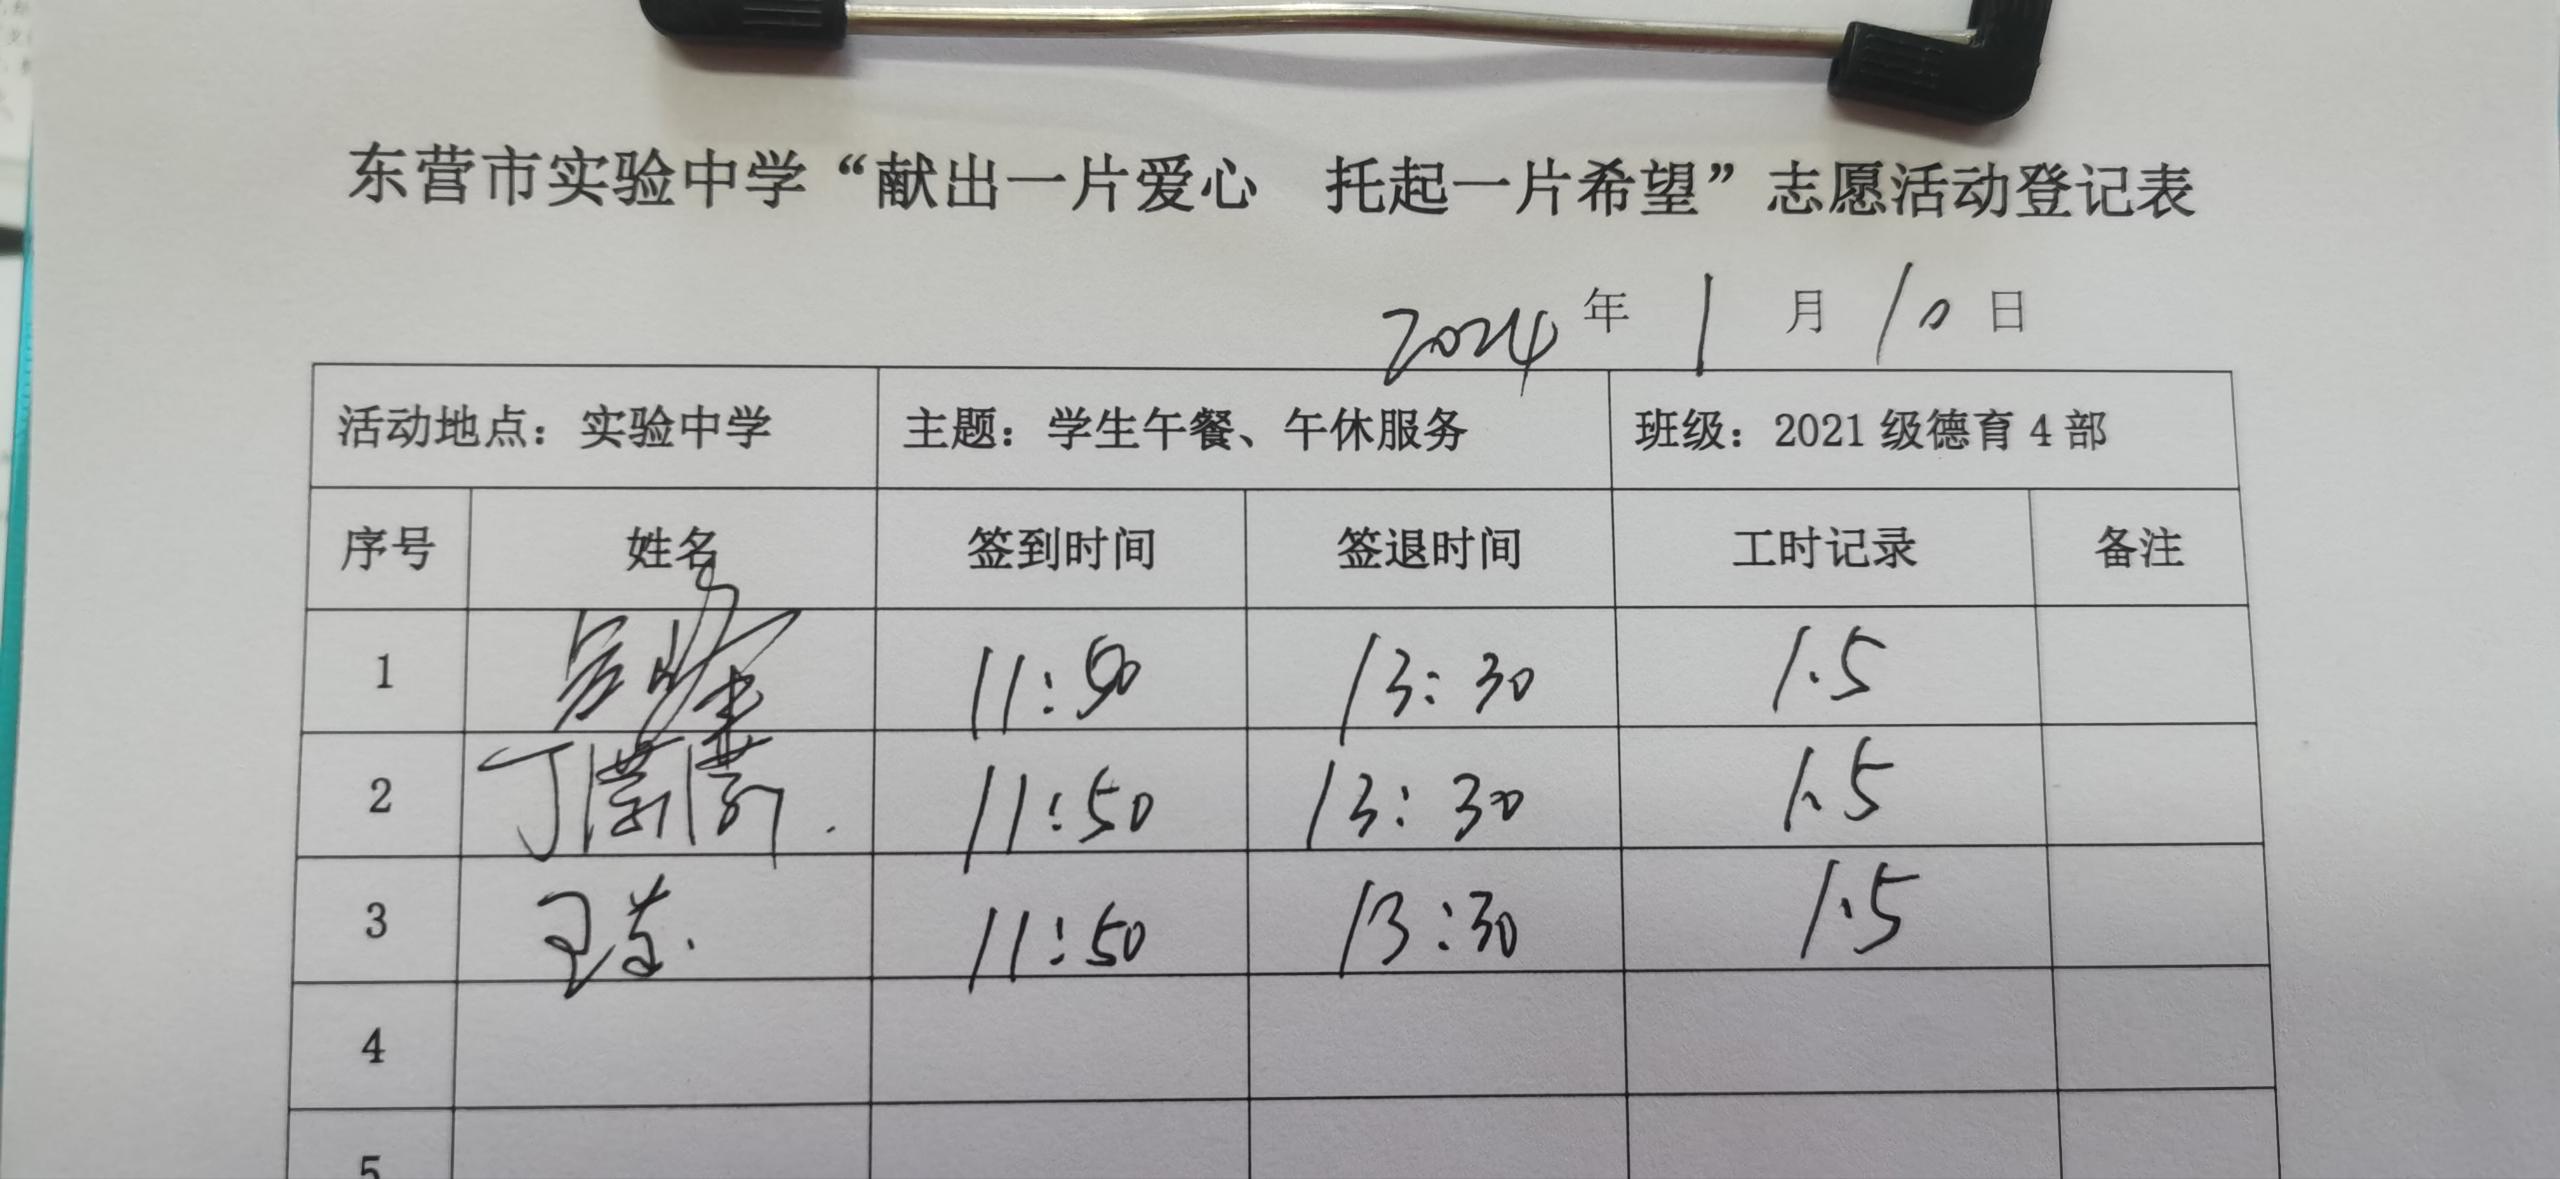 东营市实验中学“献出一片爱心 托起一片希望”志愿活动登记表
2024年1月10日
活动地点：实验中学 主题：学生午餐、午休服务 班级：2021级德育4部
序号 姓名 签到时间 签退时间 工时记录 备注
1 11:50 13:30 1.5
2 丁 11:50 13:30 1.5
3 王 11:50 13:30 1.5
4
5